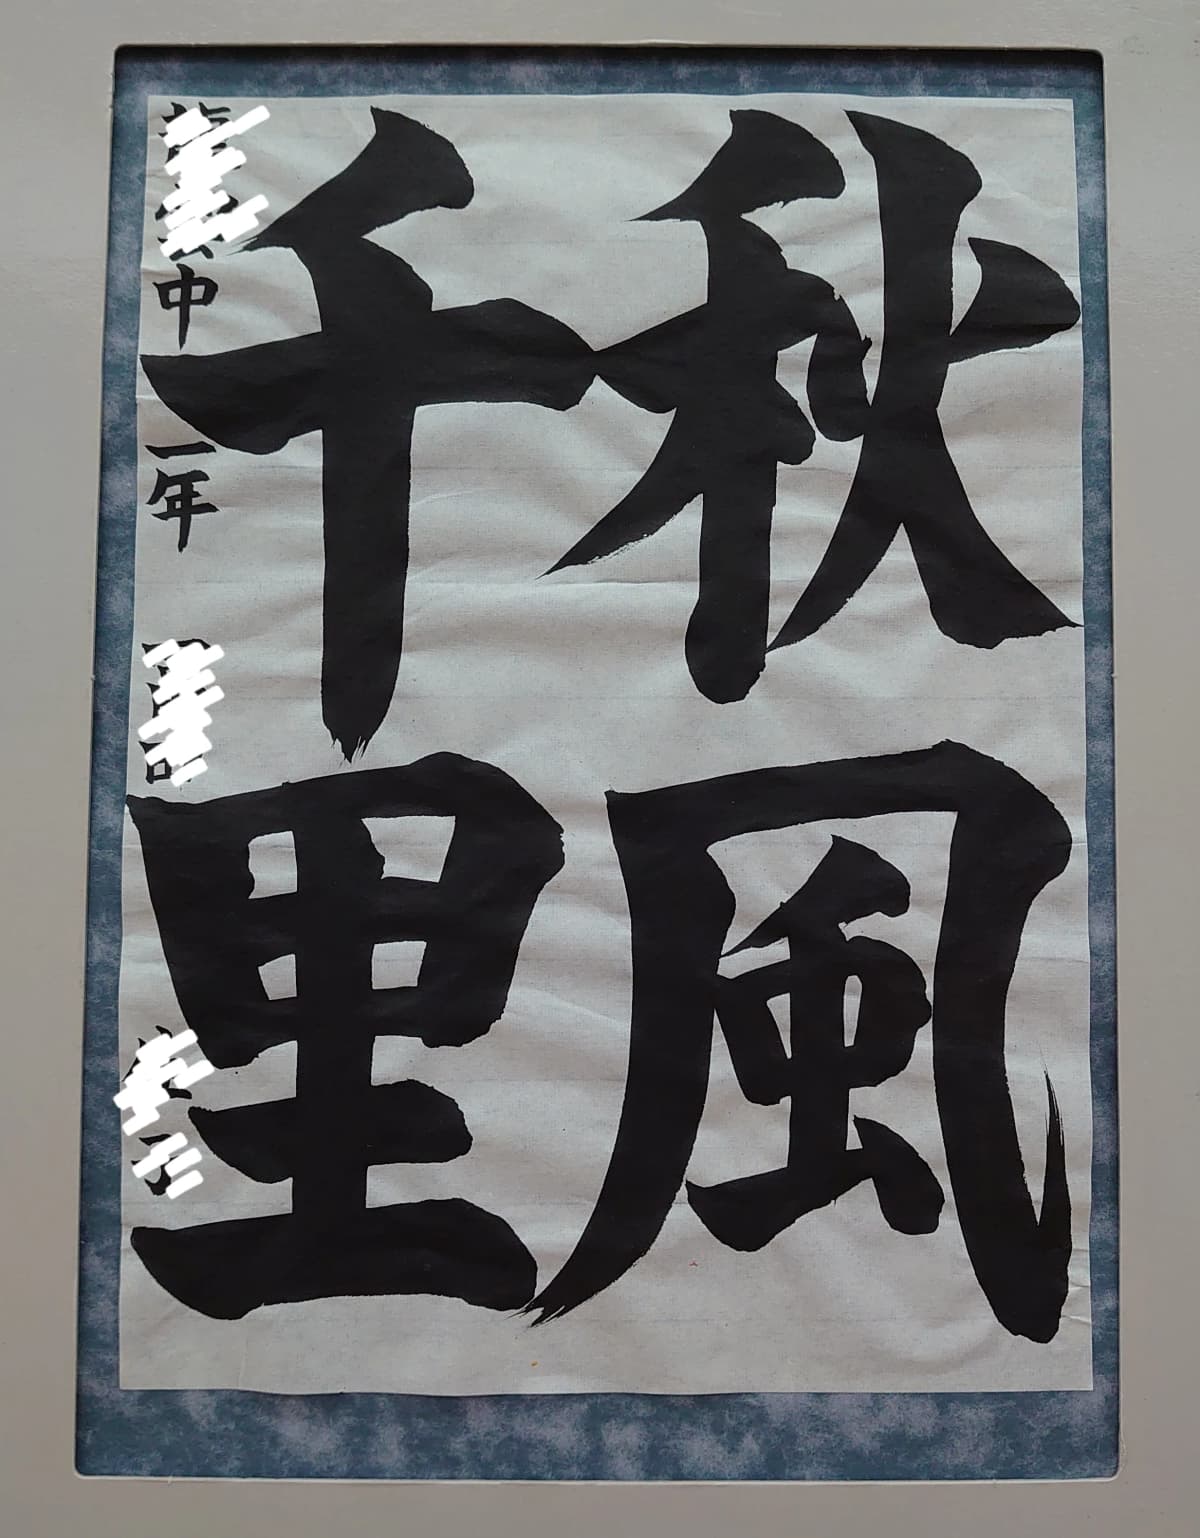 秋風
千里
中 一年